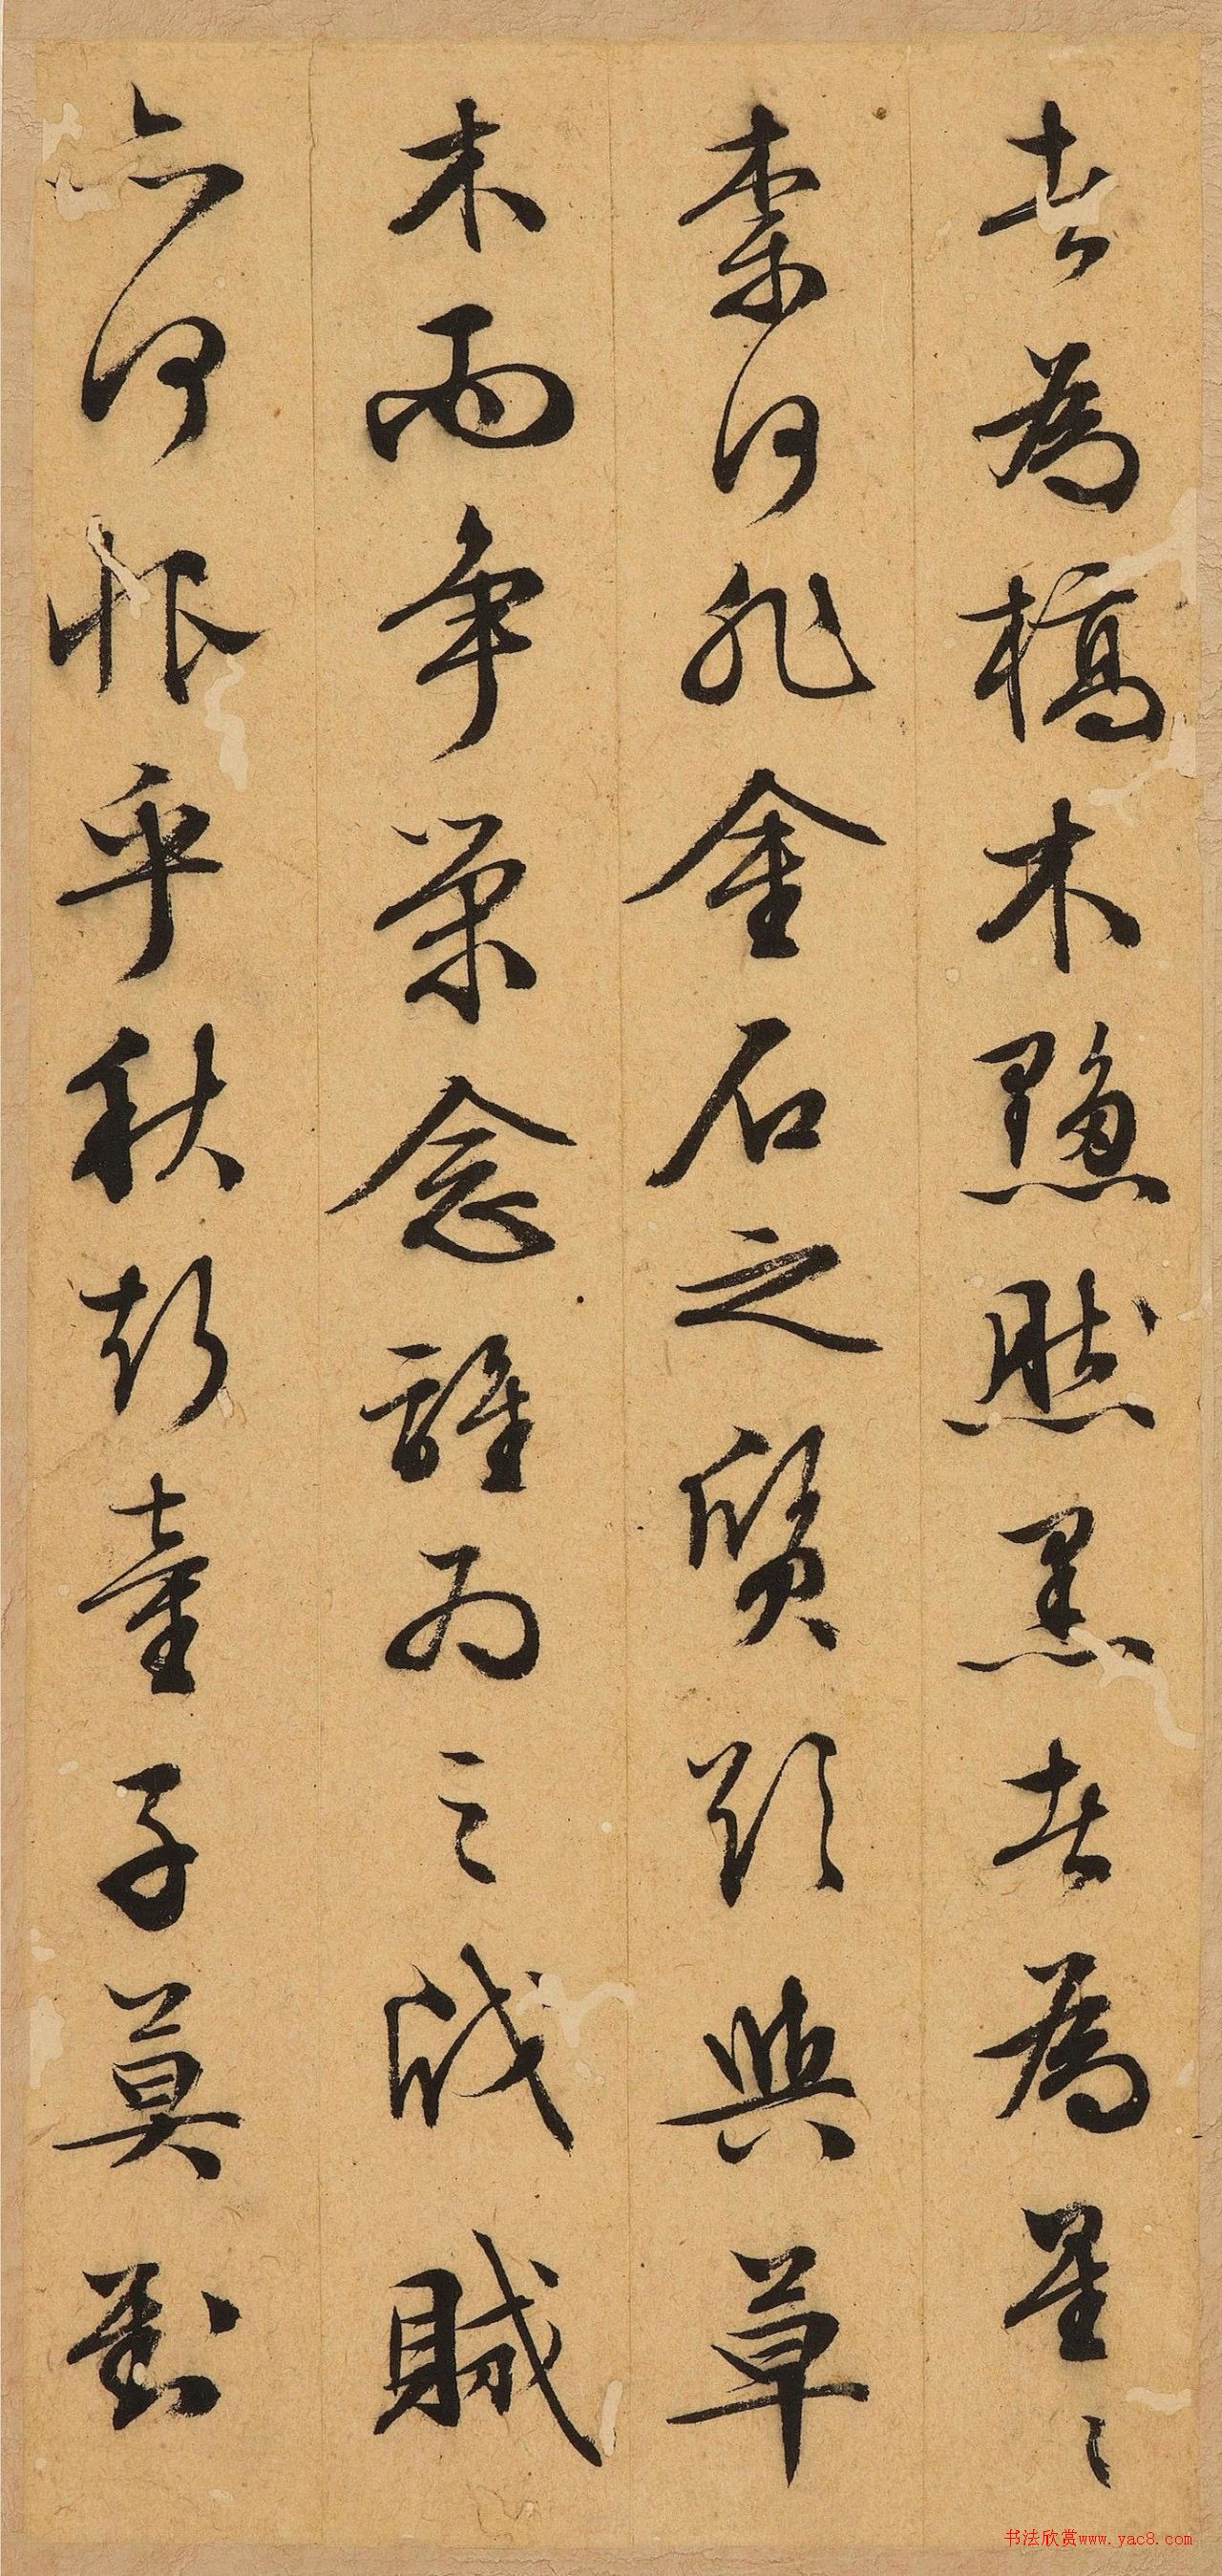 者為槁木黟然黑者為星〻
柰何非金石之質欲與草
木而爭榮念誰為之戕賊
亦何恨乎秋聲童子莫對
书法欣赏www.yac8.com